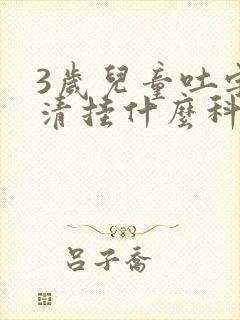 3歲兒童吐字
清挂什麼科
呂子喬